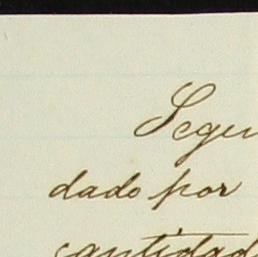 Segu
dado por
cantidad